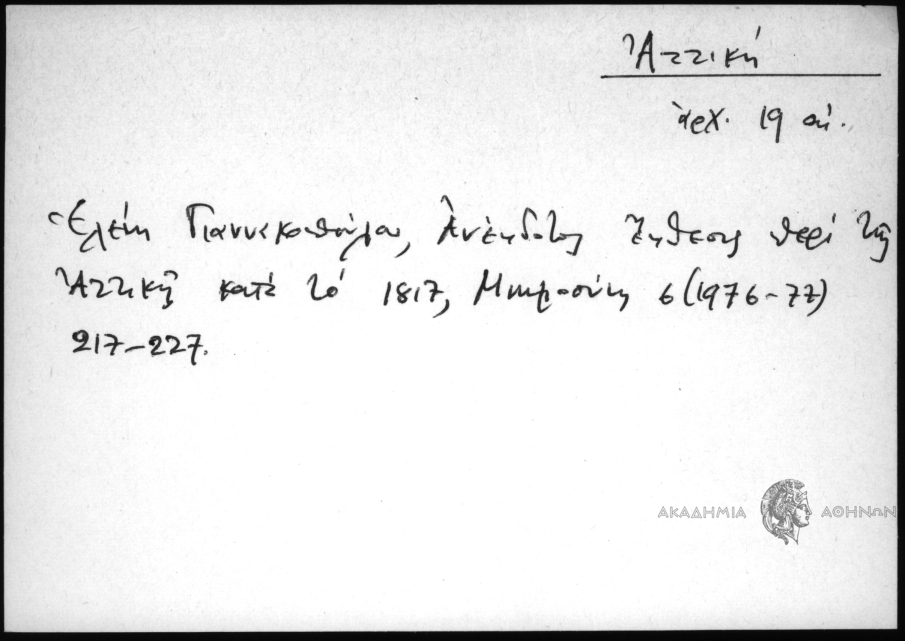 Ἀττική
ἀρχ. 19 αἰ.
Ἑλένη Γιαννακοπούλου, Ἀνέκδοτος ἔκθεσις περί τῆς
Ἀττικῆς κατά τό 1817, Μνημοσύνη 6 (1976-77)
217-227.
ΑΚΑΔΗΜΙΑ ΑΘΗΝΩΝ